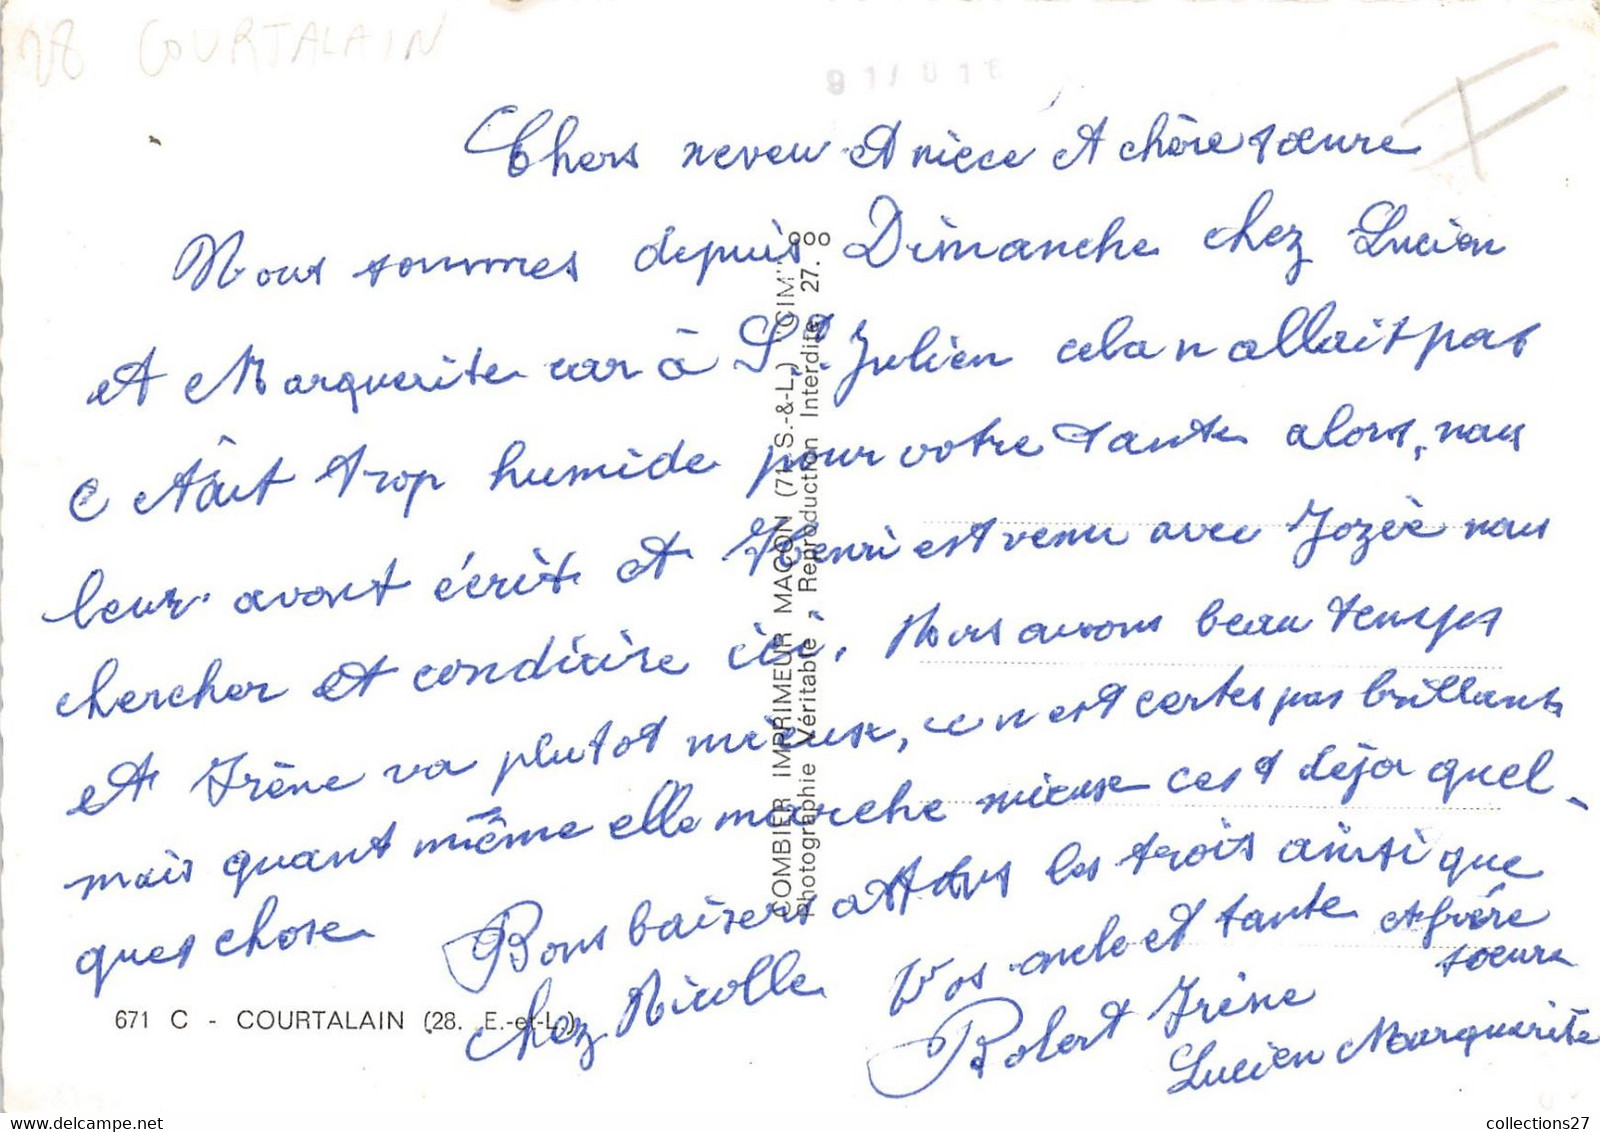 28 COURTALAIN
Chers neveu et nièce et chère sœure
Nous sommes depuis Dimanche chez Lucien
et Marguerite car à St. Julien cela n allait pas
c etait trop humide pour votre tante alors, nous
leur avont écrit et Henri est venu avec Jozée nous
chercher et conduire ici. Nous avons beau temps
et Irène va plutot mieux, ce n est certes pas brillant
mais quant même elle marche mieux cest déja quel-
ques chose Bons baisers a tous les trois ainsi que
chez Nicolle Vos oncle et tante et frère
sœure
Robert Irène
Lucien Marguerite
671 C - COURTALAIN (28. E.-et-L.)
COMBIER IMPRIMEUR MACON (71. S.-&-L.) "CIM"
Photographie Véritable - Reproduction Interdite 27.
collections27